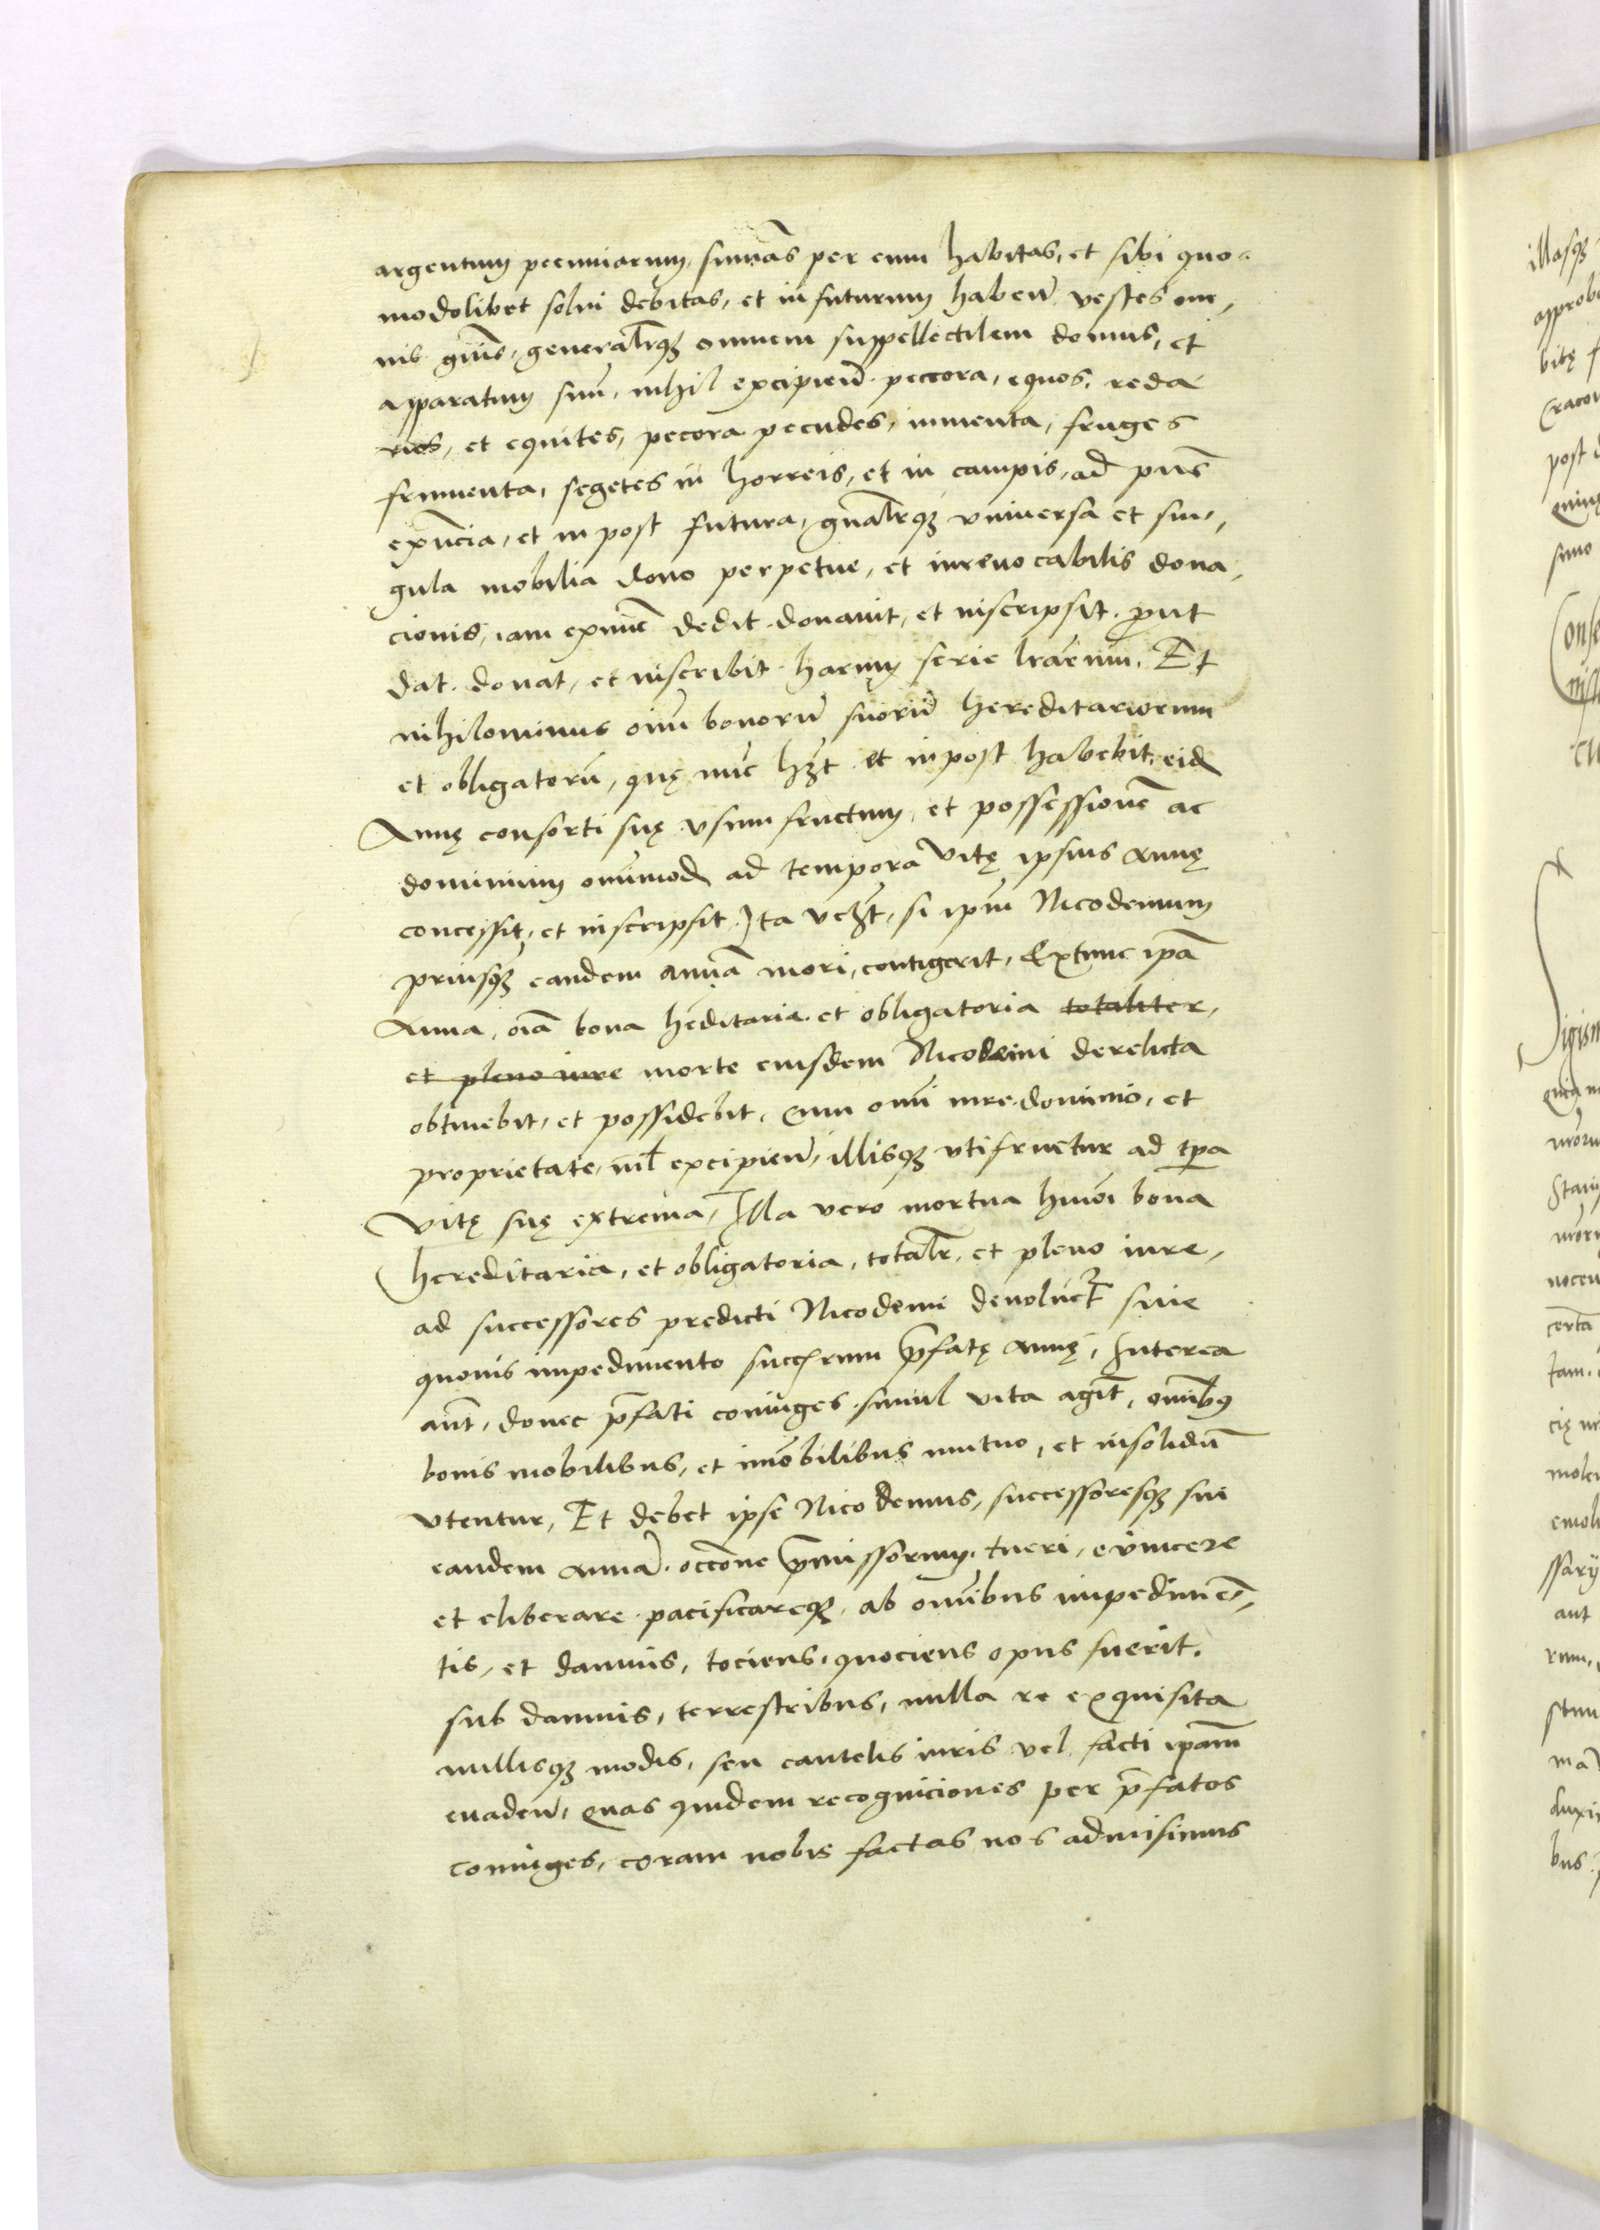 argentum pecuniarum, sum̄as per eum habitas, et sibi quo-
modolibet solui debitas, et in futurum habeñ vestes om-
nis gñis, generalr̄qꝫ omnem suppellectilem domus, et
apparatum suū, nihil excipieñ. peccora, equos, reda
rios, et equites, pecora pecudes, iumenta, fruges
frumenta, segetes in horreis, et in campis, ad pñs
exñcia, et inpost futura, gñalr̄qꝫ vniuersa et sin-
gula mobilia dono perpetue, et irreuocabilis dona-
cionis, iam exnūc dedit. donauit, et inscripsit. ꝓut
dat. donat, et inscribit. harum serie lrārum. Et
nihilominus oīm bonorū suorū hereditariorum
et obligatorū, quę nūc hꝫt et inpost habebit, eid
Annę consorti suę vsumfructum, et possessionē ac
dominium omnimod ad tempora vitę ipsius Annę
concessit, et inscripsit. Ita vcꝫt, si ipm̄ Nicodemum
priusqꝫ eandem Annā mori, contigerit, Extunc ipā
Anna, oīa bona hēditaria. et obligatoria totaliter,
et pleno iure morte eiusdem Nicodemi derelicta
obtinebit, et possidebit, cum omī iure. dominio, et
proprietate, nīl excipieñ, illisqꝫ vtifruetur ad tp̄a
vitę suę extrema, Illa vero mortua hmōi bona
hereditaria, et obligatoria, totalr̄. et pleno iure,
ad successores predicti Nicodemi deuoluēt sine
quouis impedimento succ̄rum p̄fatę Annę, Interea
aūt, donec p̄fati coniuges simul vita agēt, omībꝰ
bonis mobilibus, et īmobilibus mutuo, et insolidū
vtentur, Et debet ipse Nicodemus, successoresqꝫ sui
eandem Annā. occōne p̄missorum, tueri, euincere
et eliberare. pacificareqꝫ, ab om̄ibus impedimē-
tis, et damnis, tociens, quociens opus fuerit.
sub damnis, terrestribus, nulla re exquisita
nullisqꝫ modis, seu cautelis iuris vel facti ip̄am
euadeñ, Quas quidem recogniciones per p̄fatos
coniuges, coram nobis factas nos admisimus